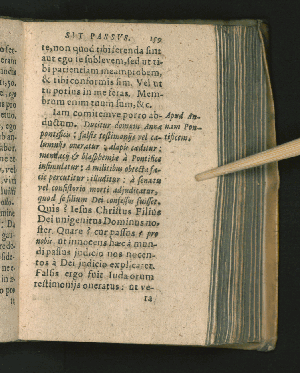 SIT PASSVS. 159
te, non quod tibi ferenda sint
aut ego te sublevem, sed ut ti-
bi patientiam meam probem,
& tibi conformis sim. Vel ut
tu potius in me feras. Mem-
brum enim tuum sum, &c.
Iam comitemve porro ab- Apud An-
ductum. Ducitur domum Anæ nam Pon-
pontifici; falsis testimoniis vel ca- tificem.
lumniis oneratur; alapis cæditur;
&c blasphemiæ à Pontifice
insimulatur; a militibus obtecta fa-
cie percutitur, illuditur: à senatu
vel consistorio morti adjudicatur,
quod se filium Dei confessus fuisset.
Quis? Iesus Christus Filius
Dei unigenitus Dominus no-
ster. Quare? cur passus e pro
nobis ut innocens hæc a mun-
di passus judicio nos nocen-
tos à Dei judicio explicaret.
Falsis ergo fuit Iudæorum
testimoniis oneratus: ut ve-
ra